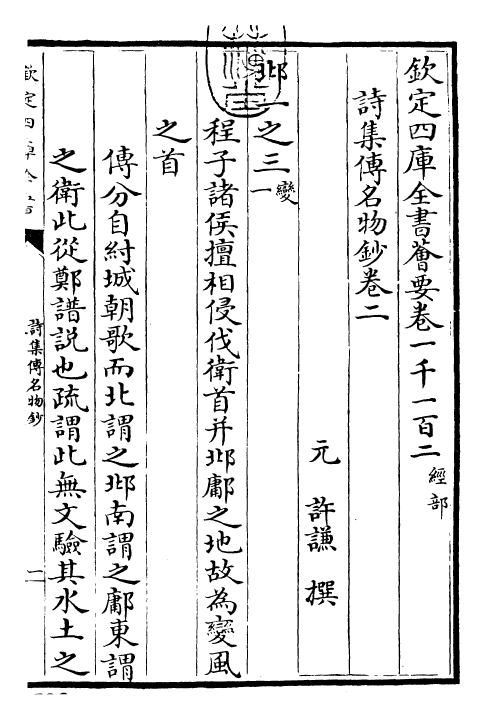 欽定四庫全書薈要卷一千一百二 經部
詩集傳名物鈔卷二
元 許謙 撰
邶一之三 變一
程子諸侯擅相侵伐衛首并邶鄘之地故為變風
之首
傳分自紂城朝歌而北謂之邶南謂之鄘東謂
之衛此從鄭譜説也疏謂此無文驗其水土之
欽定四庫全書
詩集傳名物鈔
一